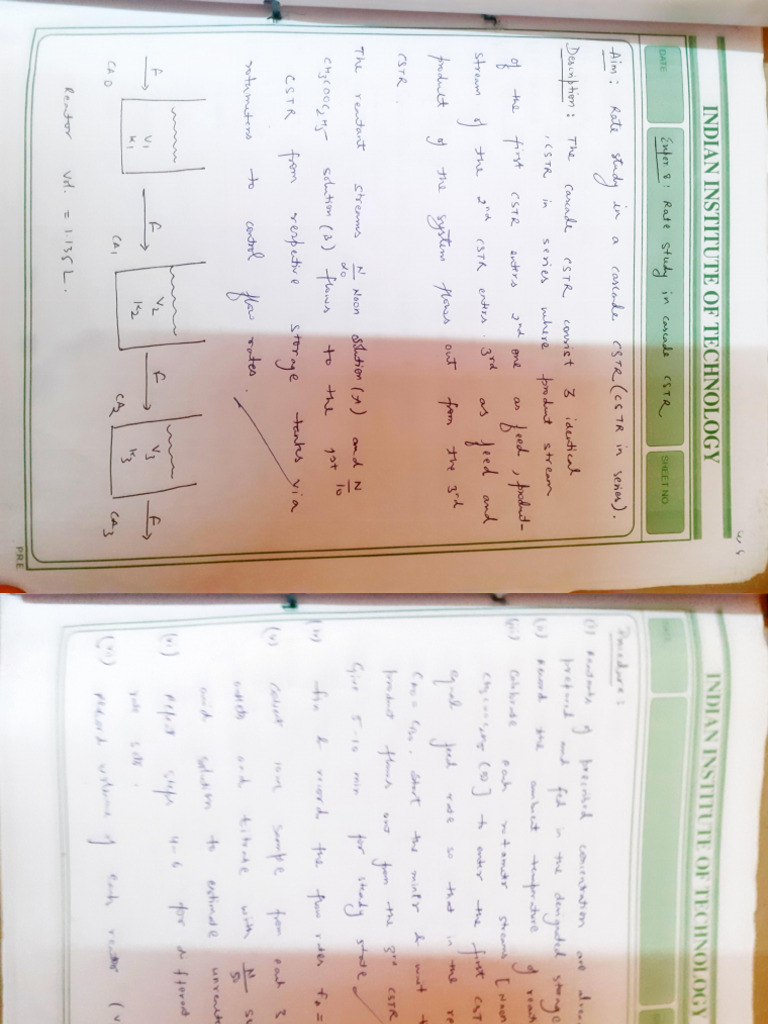 INDIAN INSTITUTE OF TECHNOLOGY
DATE
Exper. 8: Rate study in cascade CSTR
SHEET NO
Aim: Rate study in a cascade CSTR (CSTR in series).
Description: The cascade CSTR consist 3 identical
CSTR in series where product stream
of the first CSTR enters 2nd one as feed, product-
stream of the 2nd CSTR enters 3rd as feed and
product of the system flows out from the 3rd
CSTR.
The reactant streams N/20 NaOH solution (A) and N/10
CH3COOC2H5 solution (B) flows to the 1st
CSTR from respective storage tanks via
rotameters to control flow rates.
F F F F
V1 V2 V3
k1 k2 k3
CA0 CA1 CA2 CA3
Reactor vol. = 1.135 L.
PRE
INDIAN INSTITUTE OF TECHNOLOGY
Procedure:
(i) Reactants of prescribed concentration are
prepared and fed in the designated storage
(ii) Record the ambient temperature of
(iii) Calibrate each rotameter streams [NaOH
CH3COOC2H5 (B)] to enter the first
equal feed rate so that in the
CA0 = CB0. Start the mixer & wait
product flows out from the 3rd CSTR
Give 5-10 min for steady state
(iv) Fix & record the flow rates FA =
(v) Collect 10ml sample from each 3
outlets and titrate with N/50
acid solution to estimate
(vi) Repeat steps 4-6 for different
rate sets.
(vii) Record volume of each reactor (V